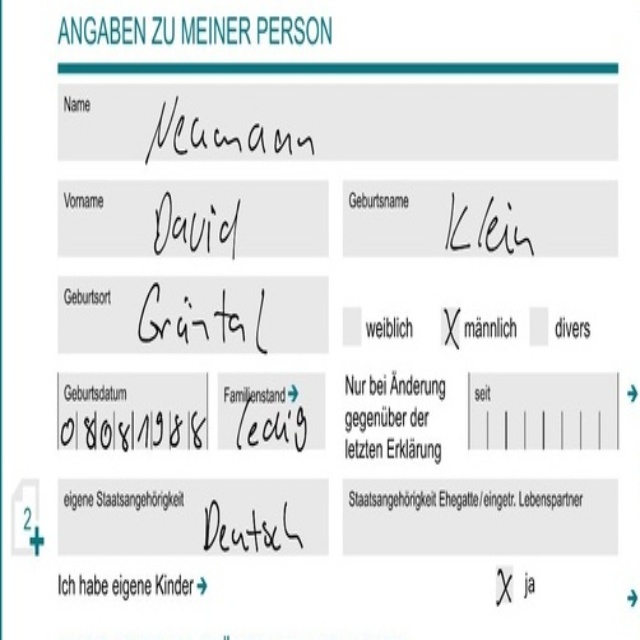 ANGABEN ZU MEINER PERSON
Name
Neumann
Vorname
David
Geburtsname
Klein
Geburtsort
Grüntal
weiblich X männlich divers
Geburtsdatum
08081988
Familienstand →
ledig
Nur bei Änderung
gegenüber der
letzten Erklärung
seit
→
eigene Staatsangehörigkeit
Deutsch
Staatsangehörigkeit Ehegatte/eingetr. Lebenspartner
2+
Ich habe eigene Kinder → X ja →